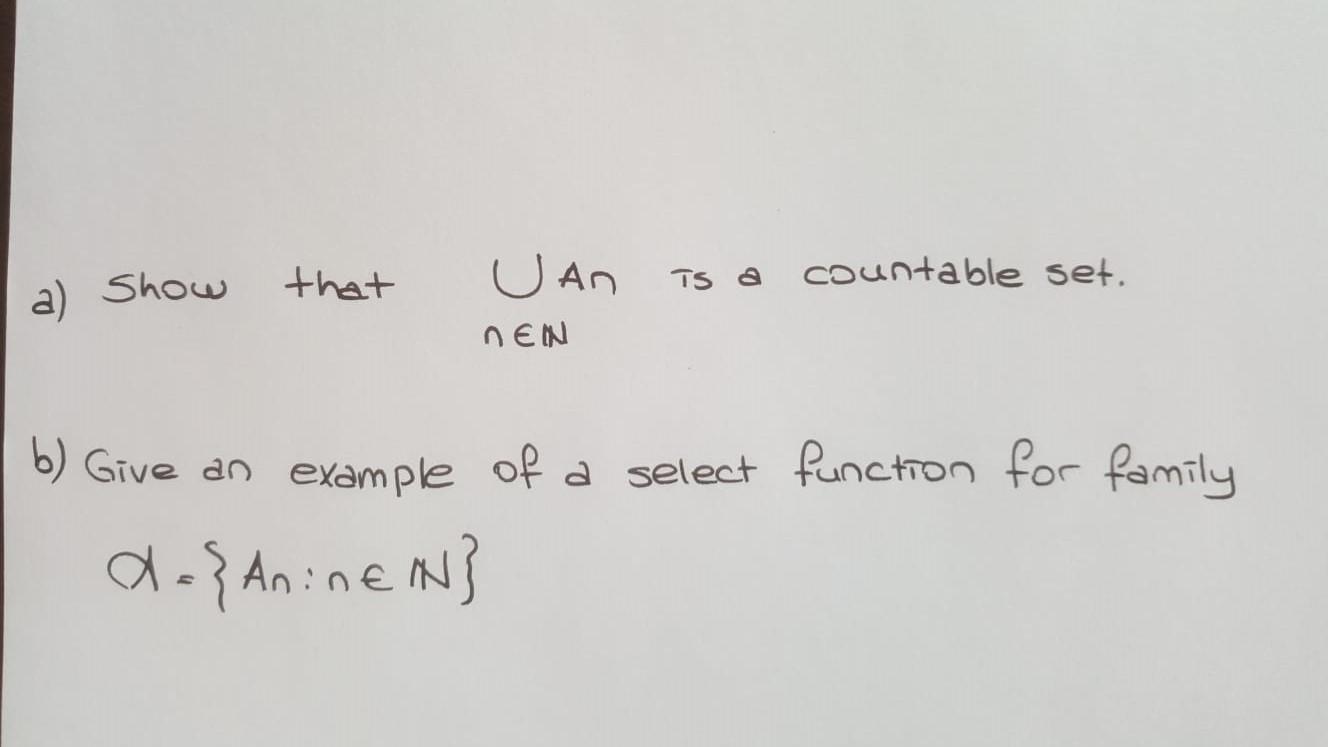 a) Show that ∪ An is a countable set.
n∈ℕ
b) Give an example of a select function for family
𝒜 = {An : n ∈ ℕ}